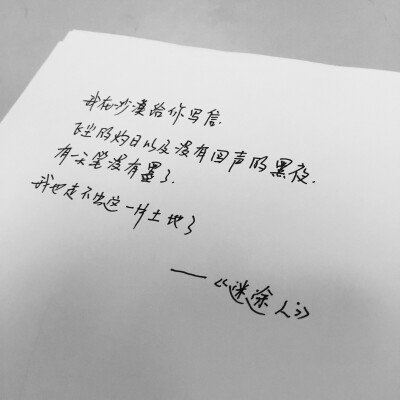 我在沙漠给你写信.
飞尘的灼日以及没有回声的黑夜.
有一天笔没有墨了.
我也走不出这一片土地了
——《迷途人》